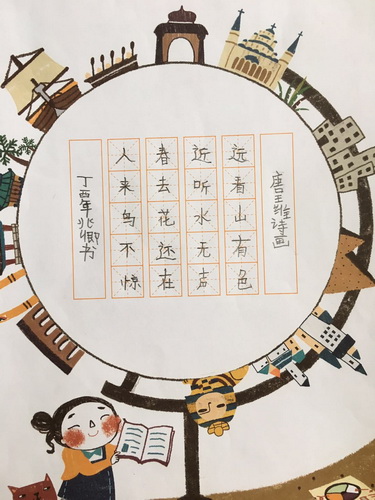 唐王维诗画
远看山有色
近听水无声
春去花还在
人来鸟不惊
丁酉年兆卿书